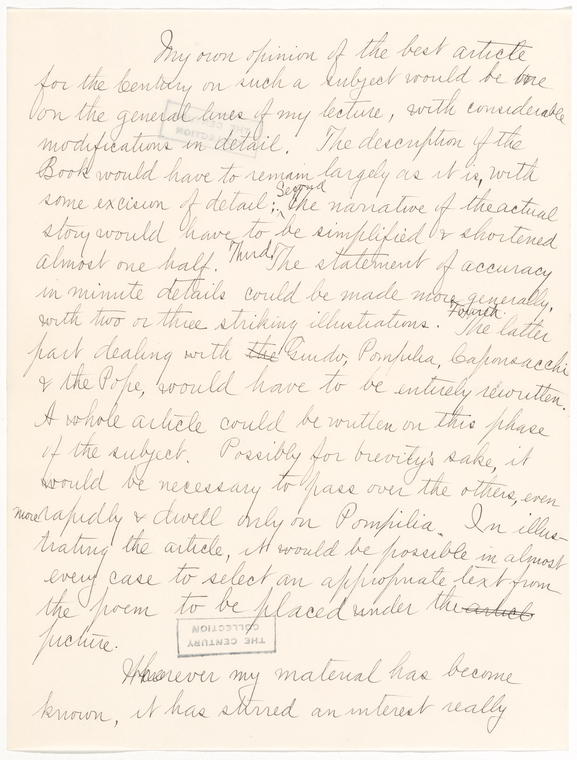 My own opinion of the best article
for the Century on such a subject would be one
on the general lines of my lecture, with considerable
modifications in detail. The description of the
Book would have to remain largely as it is, with
some excision of detail; Second The narrative of the actual
story would have to be simplified & shortened
almost one half. Third The statement of accuracy
in minute details could be made more generally,
with two or three striking illustrations. Fourth The latter
part dealing with the Guido, Pompilia, Caponsacchi
& the Pope, would have to be entirely rewritten.
A whole article could be written on this phase
of the subject. Possibly for brevity's sake, it
would be necessary to pass over the others, even
more rapidly & dwell only on Pompilia. In illus-
trating the article, it would be possible in almost
every case to select an appropriate text from
the poem to be placed under the article
picture.
THE CENTURY
COLLECTION
Whenever my material has become
known, it has stirred an interest really